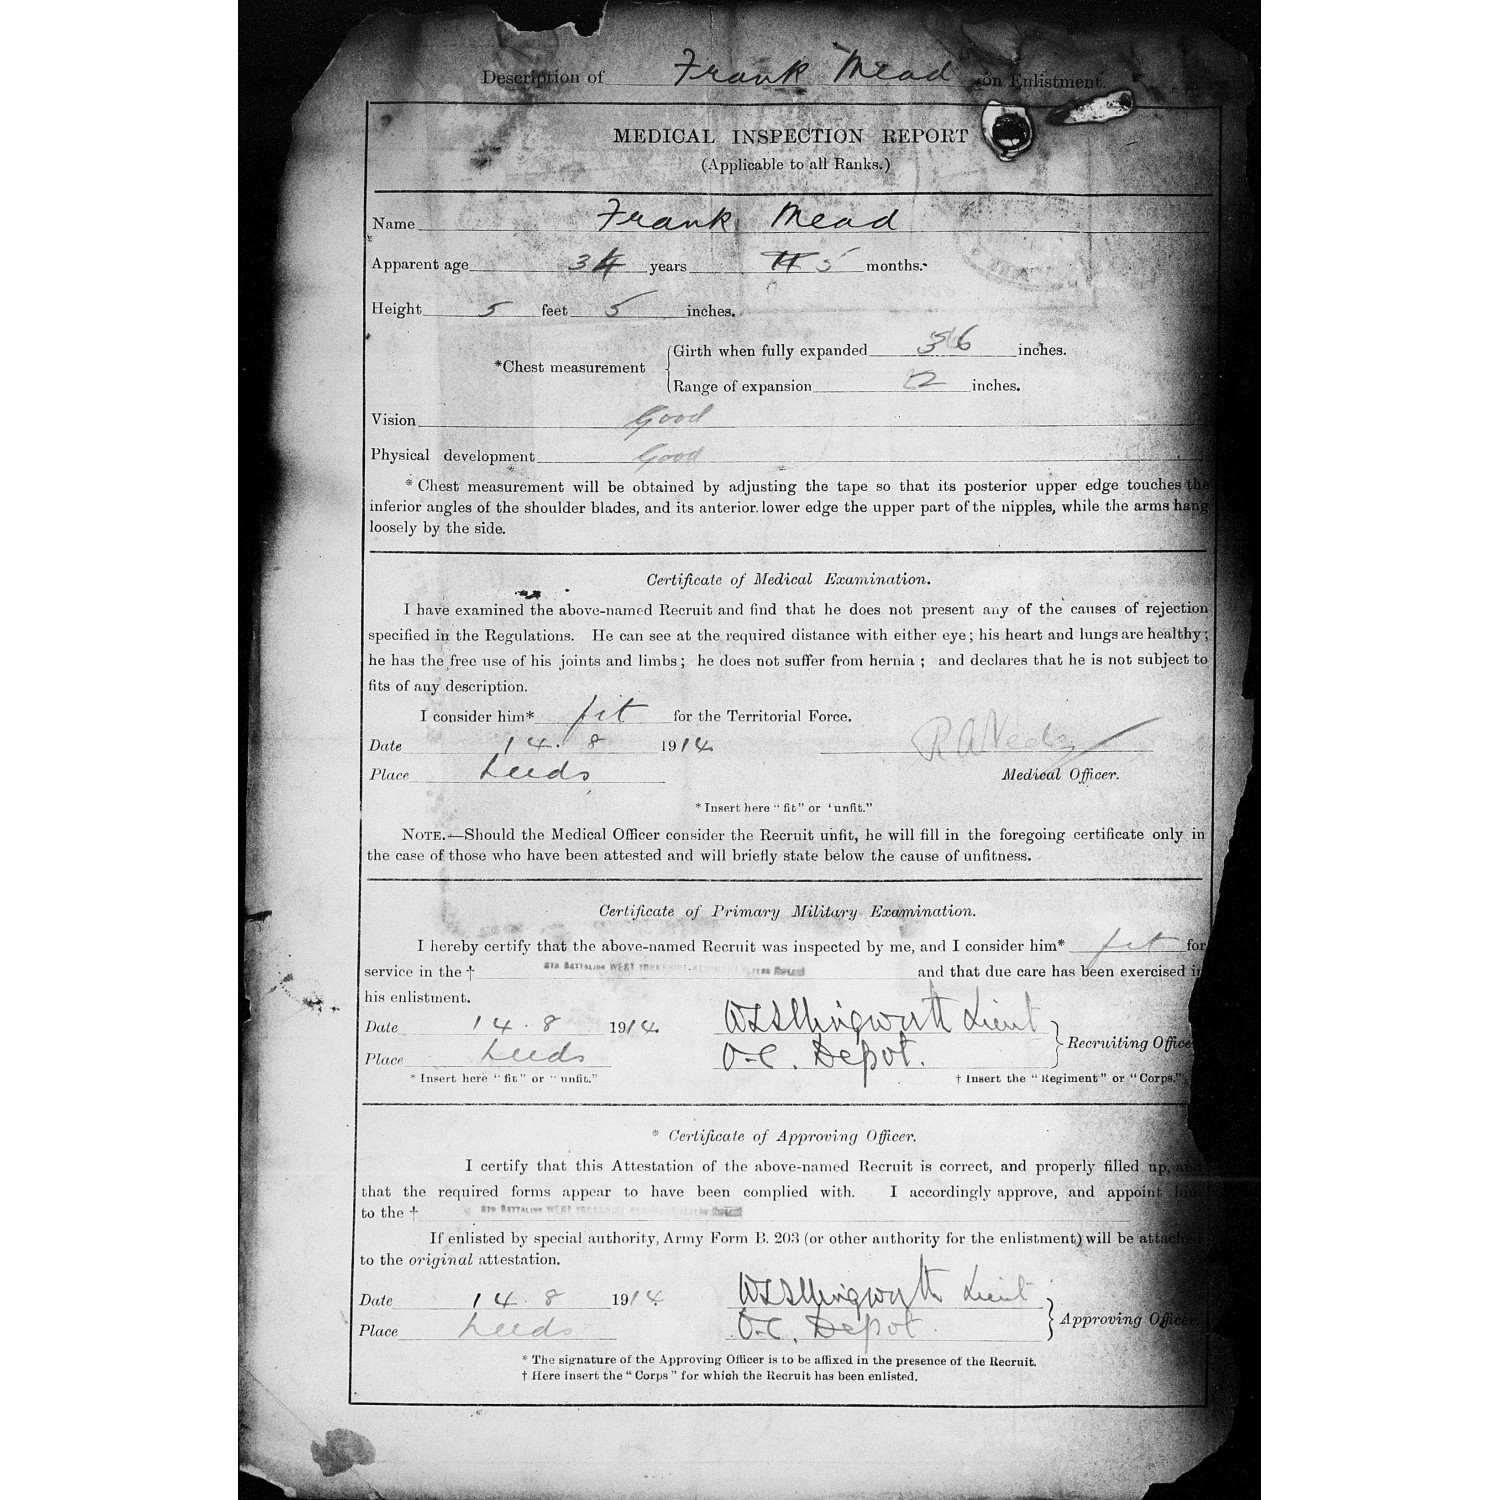 Description of Frank Mead on Enlistment.
MEDICAL INSPECTION REPORT
(Applicable to all Ranks.)
Name Frank Mead
Apparent age 34 years 5 months.
Height 5 feet 5 inches.
*Chest measurement
Girth when fully expanded 36 inches.
Range of expansion 2 inches.
Vision Good
Physical development Good
* Chest measurement will be obtained by adjusting the tape so that its posterior upper edge touches the
inferior angles of the shoulder blades, and its anterior lower edge the upper part of the nipples, while the arms hang
loosely by the side.
Certificate of Medical Examination.
I have examined the above-named Recruit and find that he does not present any of the causes of rejection
specified in the Regulations. He can see at the required distance with either eye; his heart and lungs are healthy;
he has the free use of his joints and limbs; he does not suffer from hernia; and declares that he is not subject to
fits of any description.
I consider him* fit for the Territorial Force.
Date 14. 8 1914.
Place Leeds
Medical Officer.
* Insert here "fit" or 'unfit."
NOTE.—Should the Medical Officer consider the Recruit unfit, he will fill in the foregoing certificate only in
the case of those who have been attested and will briefly state below the cause of unfitness.
Certificate of Primary Military Examination.
I hereby certify that the above-named Recruit was inspected by me, and I consider him* fit for
service in the † 8TH BATTALION WEST YORKSHIRE REGIMENT (LEEDS RIFLES) and that due care has been exercised in
his enlistment.
Date 14. 8 1914. W L Illingworth Lieut
Place Leeds O.C. Depot. Recruiting Office
* Insert here "fit" or "unfit." † Insert the "Regiment" or "Corps."
* Certificate of Approving Officer.
I certify that this Attestation of the above-named Recruit is correct, and properly filled up, and
that the required forms appear to have been complied with. I accordingly approve, and appoint him
to the † 8TH BATTALION WEST YORKSHIRE REGIMENT (LEEDS RIFLES)
If enlisted by special authority, Army Form B. 203 (or other authority for the enlistment) will be attached
to the original attestation.
Date 14. 8 1914. W L Illingworth Lieut
Place Leeds O.C. Depot. Approving Officer
* The signature of the Approving Officer is to be affixed in the presence of the Recruit.
† Here insert the "Corps" for which the Recruit has been enlisted.